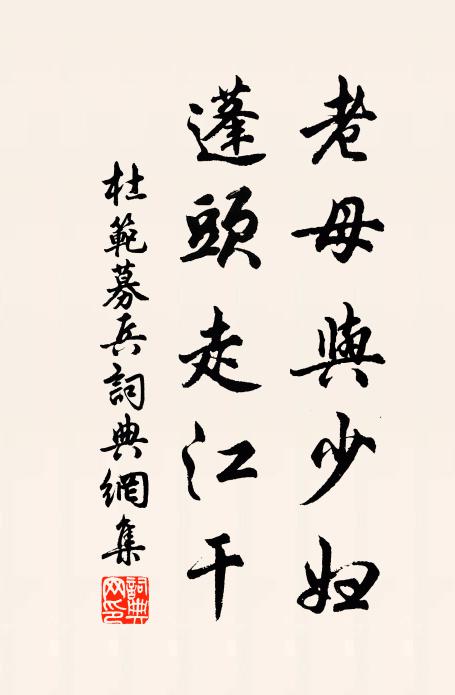 老母與少婦
蓬頭走江干
杜範募兵詞典網集
詞典網印